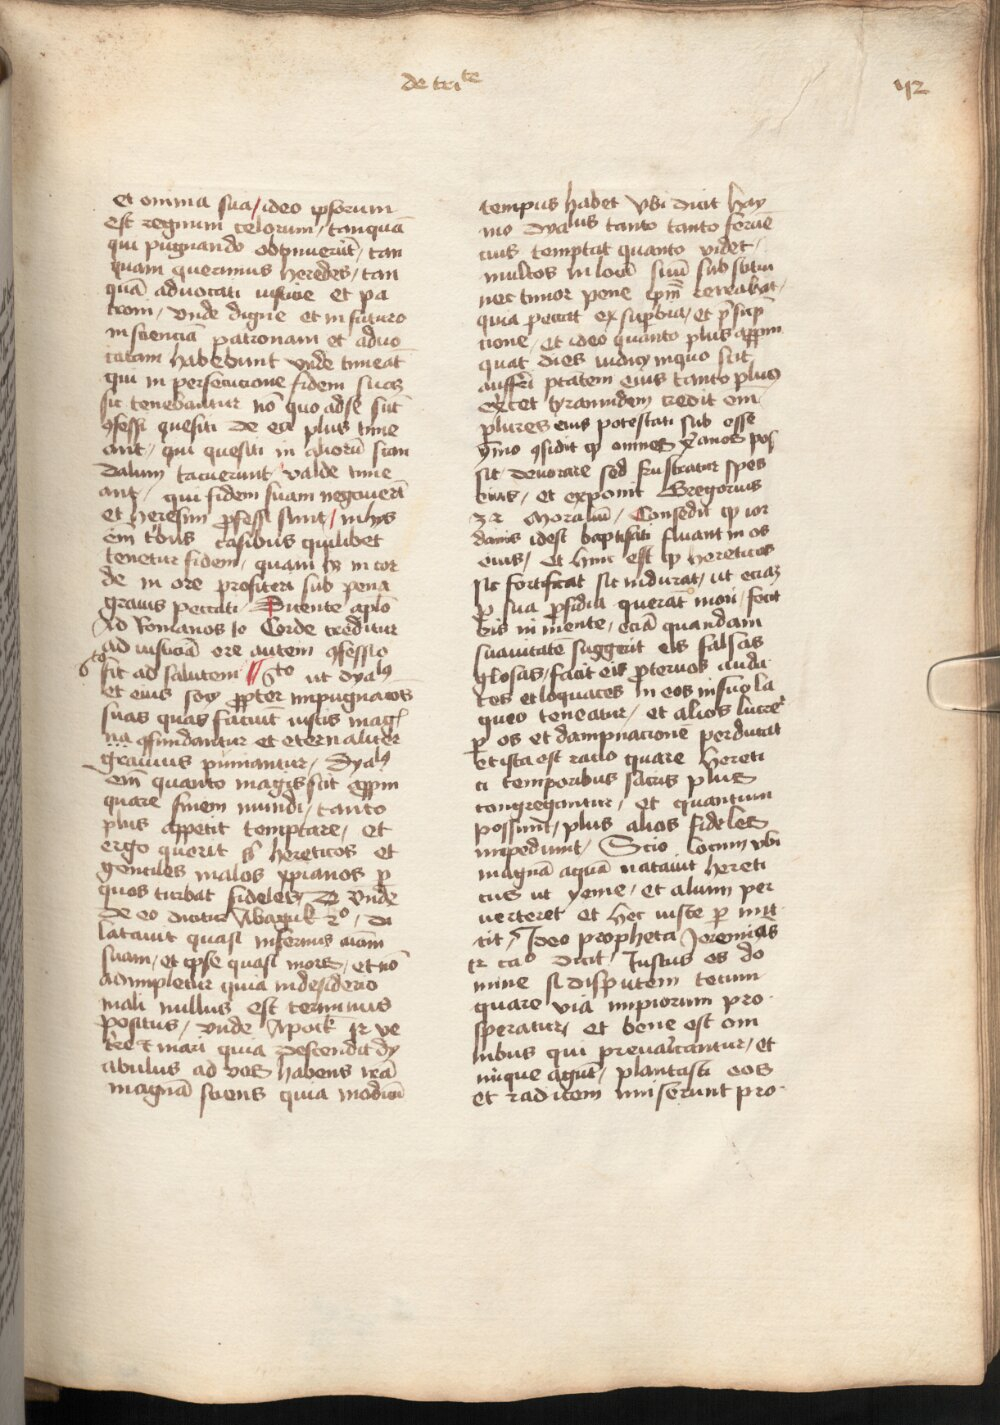 de tri^te
112
et omnia sua / ideo ipsorum
est regnum celorum / tanquā
qui pugnando obtinuerūt / tan
quam querimus heredes / tan
quā advocati iusticie et pa
troni / Unde digne et in futuro
insciencia patronam et advo
catam habebunt Unde timeāt
qui in persecucione fidem suaȝ
sic tenebantur nō quo adse sūt
ꝯfessi quesiti de ea plus time
ant / qui quesiti in aliorū scan
dalum tacuerunt / valde time
ant / qui fidem suam negaverūt
et heresim ꝓfessi sunt / in hijs
em̄ tribus casibus quilibet
tenetur fidem / quam hȝ in cor
de in ore profiteri sub pena
gravis peccati / Dicente aplō
Ad Romanos 10 Corde creditur
ad iusticiā ore autem ꝯfessio
fit ad salutem // 6^to ut dya^lus
6^to
et eius socij ꝓpter impugnacōes
suas quas faciūt iustis mag^s
ꝯfundantur et eternaliter
gravius puniantur / Dya^lus
em̄ quanto magis scit appin
quare finem mundi / tanto
plus appetit temptare / et
ergo querit hereticos et
gentiles malos xpianos ꝑ
quos turbat fideles / Unde
de eo dicitur Abaguk 2º / Di
latavit quasi infernus aīam
suam / et ipse quasi mors / et nō
adimpletur quia indesiderio
mali nullus est terminus
positus / Unde Apoc̄ 12 ve
terre et mari quia descendit dy
abulus ad vos habens irā
magnā sciens quia modicū
tempus habet Ubi dicit hay
mo dya^lus tanto tanto forcie
cius temptat quanto videt
multos in locū suū substitui
nec timor pene ipm̄ revocat /
quia peccat ex supbia / et p̄sūp
cione / et ideo quanto plus appin
quat dies iudicij inquo scit
aufferri ptātem eius tanto plus
excet tyrannidem credit em̄
plures eius potestati sub esse
ymo ꝯfidit ꝙ omnes xp̄ianos pos
sit devorare sed frustratur spes
eius / et exponit Gregorius
32 Moraliū / Confidit ꝙ ior
danis idest baptisati fluant in os
eius / et hinc est ꝙ hereticos
sic fortificat sic indurat / ut eciaȝ
ꝓ sua ꝑfidia querāt mori / fecit
eis in mente / eciā quandam
suavitatē suggerit eis falsas
glosas / facit eis ꝓtervos auda
ces et loquaces in eos in suo la
queo teneatur / et alios lucre^t
ꝑ os et dampnacionē perducat
Et ista est racio quare hereti
ci temporibus sacris plus
congregantur / et quantum
possunt / plus alios fideles
impediunt / Scio locum ubi
magnā aquā natavit hereti
cus ut yeme / et alium per
verteret et hec iuste ꝑ mit
tit / Ideo propheta Jeremias
12 caº dicit / Justus es do
mine si disputem tecum
quare via impiorum pro
speratur / et bene est om
nibus qui prevaricantur / et
inique agūt / plantasti eos
et radicem miserunt pro